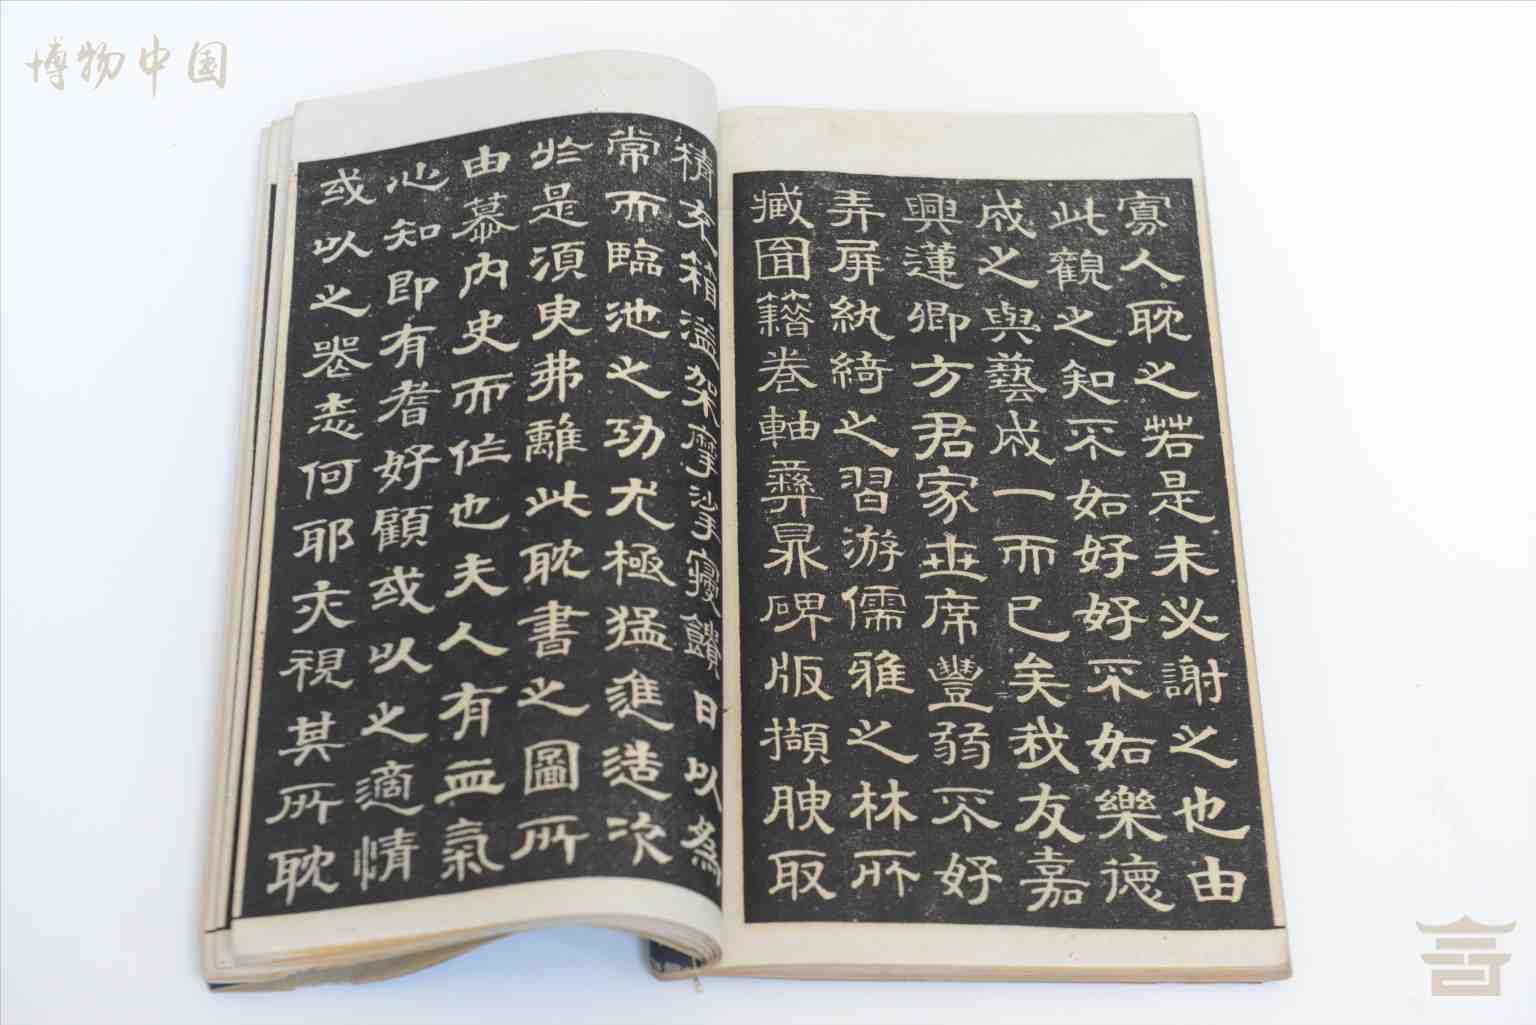 博物中国
寡人耽之若是未必謝之也由
此觀之知不如好好不如樂德
成之與藝成一而已矣我友嘉
興蓮卿方君家世席豐弱不好
弄屏紈綺之習游儒雅之林所
藏圖籍卷軸彝鼎碑版擷腴取
精充箱溢架摩挲寢饋日以為
常而臨池之功尤極猛進造次
於是須臾弗離此耽書之圖所
由慕內史而作也夫人有血氣
心知即有耆好顧或以之適情
或以之喪志何耶夫視其所耽